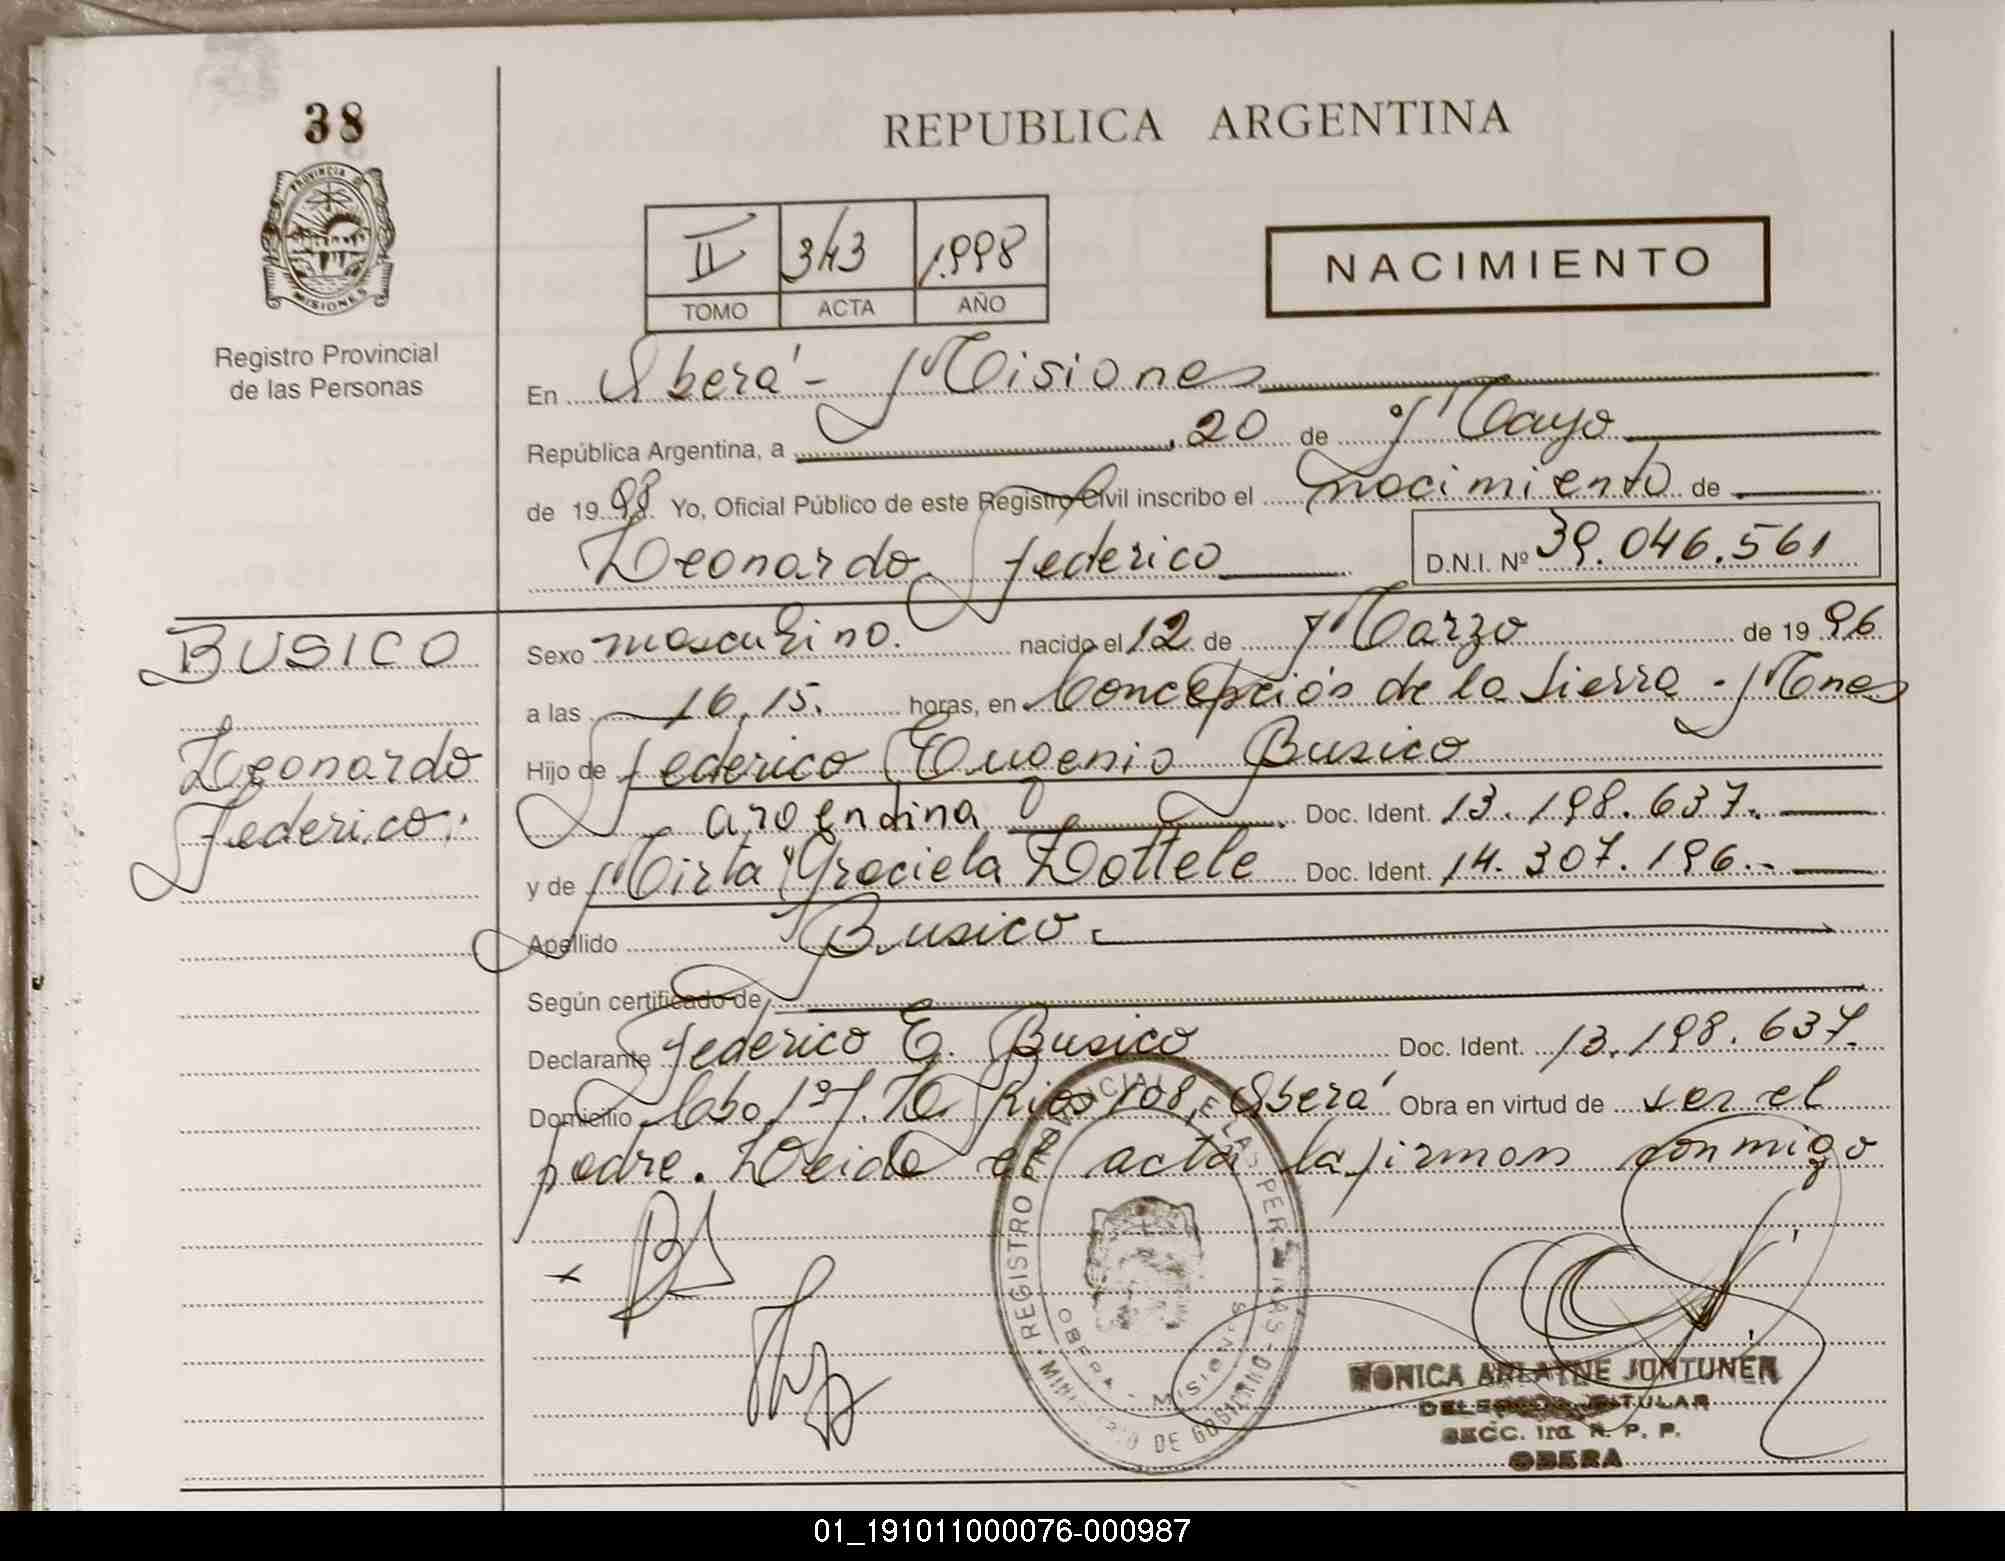 38
PROVINCIA D
MISIONES
Registro Provincial
de las Personas
REPUBLICA ARGENTINA
II 343 1998
TOMO ACTA AÑO
NACIMIENTO
En Oberá - Misiones
República Argentina, a 20 de Mayo
de 19 98 Yo, Oficial Público de este Registro Civil inscribo el nacimiento de
Leonardo Federico D.N.I. Nº 39.046.561
BUSICO
Leonardo
Federico.
Sexo masculino. nacido el 12 de Marzo de 19 96
a las 16,15. horas, en Concepción de la Sierra - Mnes
Hijo de Federico Eugenio Busico
argentina Doc. Ident. 13.198.637.
y de Mirta Graciela Dottele Doc. Ident. 14.307.196.-
Apellido Busico.
Según certificado de
Declarante Federico E. Busico Doc. Ident. 13.198.637.
Domicilio Cabo 1º Rios 108, Oberá Obra en virtud de ser el
padre. Leida el acta la firman conmigo
REGISTRO PROVINCIAL DE LAS PERSONAS
MINISTERIO DE GOBIERNO
OBERA - MISIONES
MONICA ARLAYNE JONTUNEN
DELEGADA TITULAR
SECC. 1ra. R. P. P.
OBERA
01_191011000076-000987